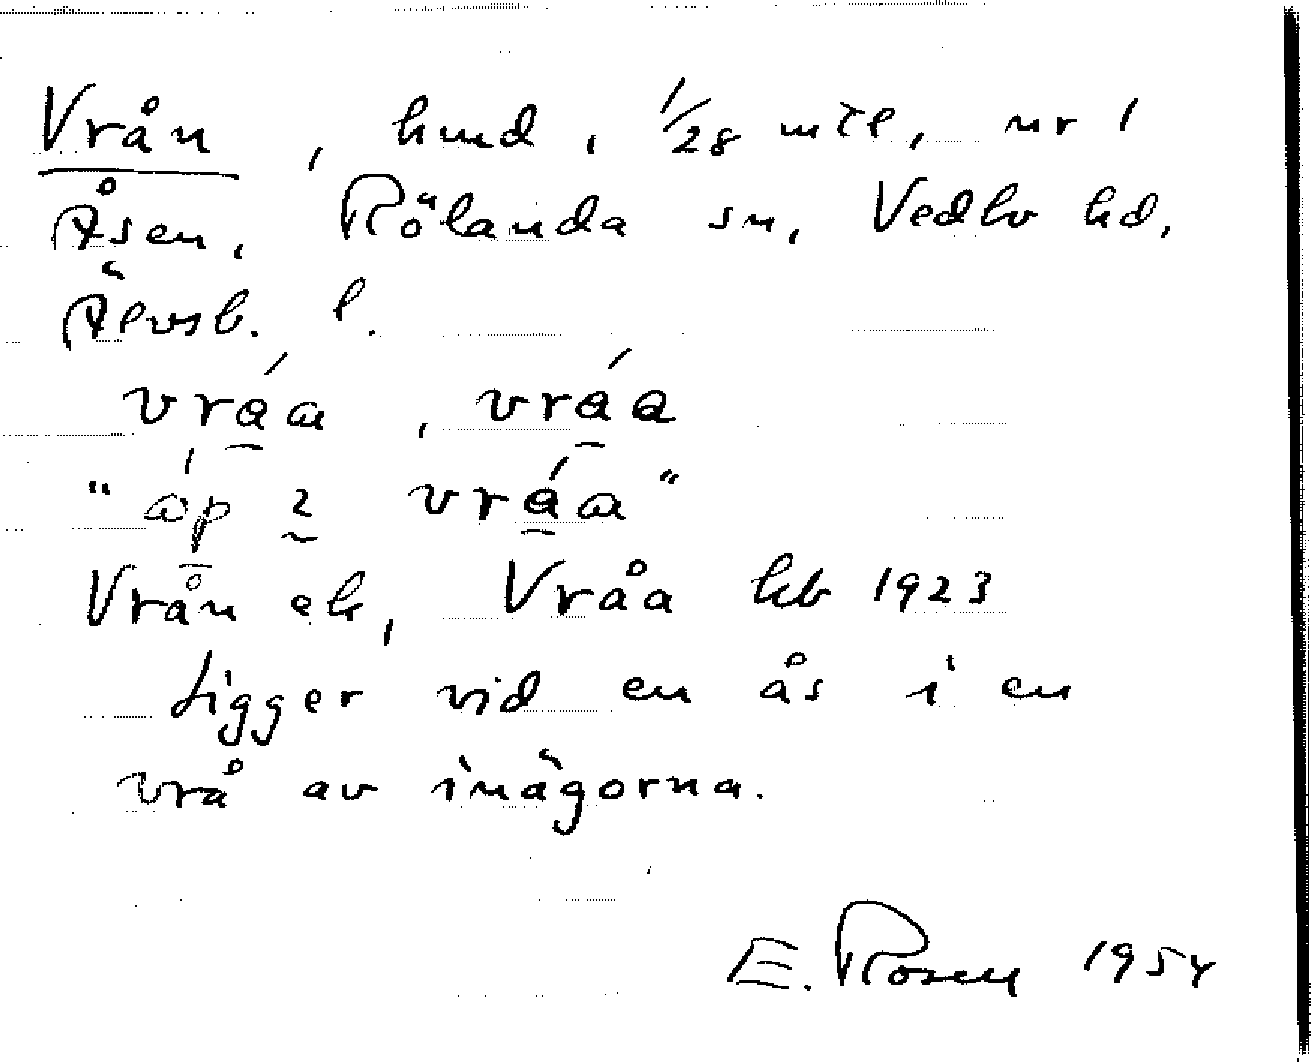 Vrån, hmd, 1/28 mtl, nr 1
Åsen, Rölanda sn, Vedbo hd,
Älvsb. l.
vráa, vráa
"áp 2 vráa"
Vrån ek, Vråa kb 1923
Ligger vid en ås i en
vrå av inägorna.
E. Rosell 1954